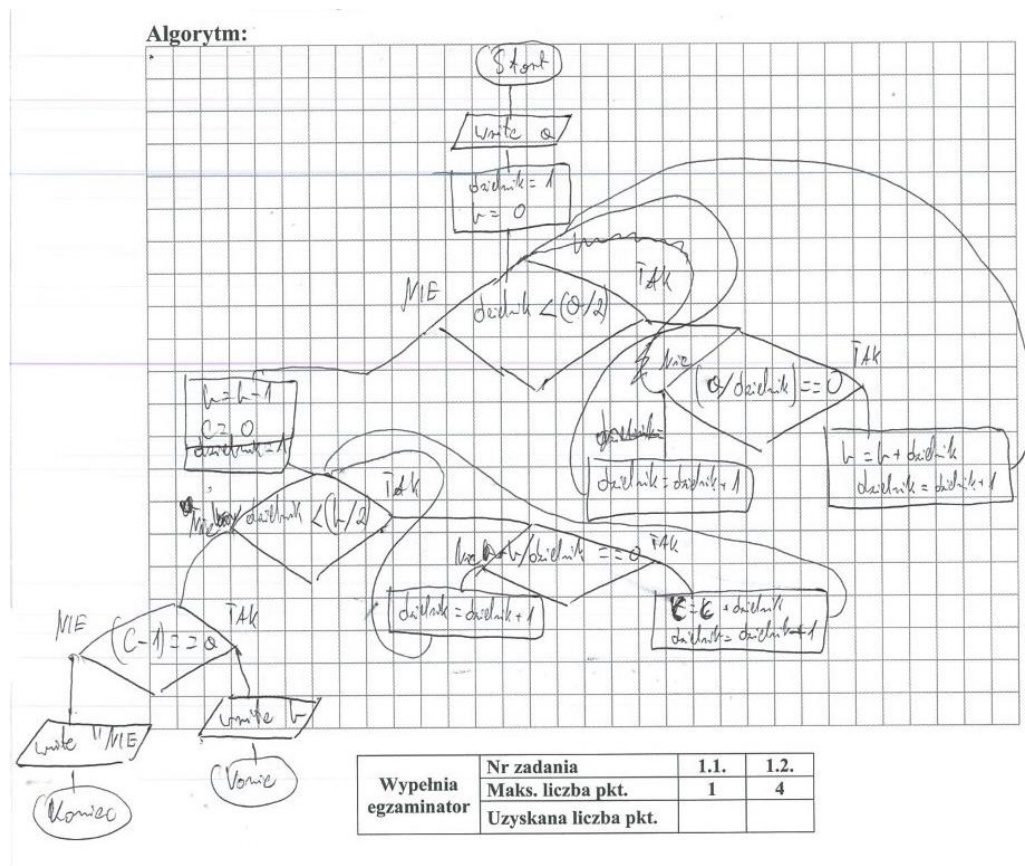 Algorytm:
Start
write a
dzielnik = 1
b = 0
NIE
dzielnik < (a/2)
TAK
Nie
(a/dzielnik) == 0
TAK
b = b-1
c = 0
dzielnik = 1
dzielnik=
dzielnik = dzielnik + 1
b = b + dzielnik
dzielnik = dzielnik + 1
Nie
dzielnik < (b/2)
TAK
Nie
b/dzielnik == 0
TAK
dzielnik = dzielnik + 1
c = c + dzielnik
dzielnik = dzielnik + 1
NIE
(c-1) == a
TAK
write "NIE
write b
Koniec
Koniec
Wypełnia egzaminator
Nr zadania 1.1. 1.2.
Maks. liczba pkt. 1 4
Uzyskana liczba pkt.